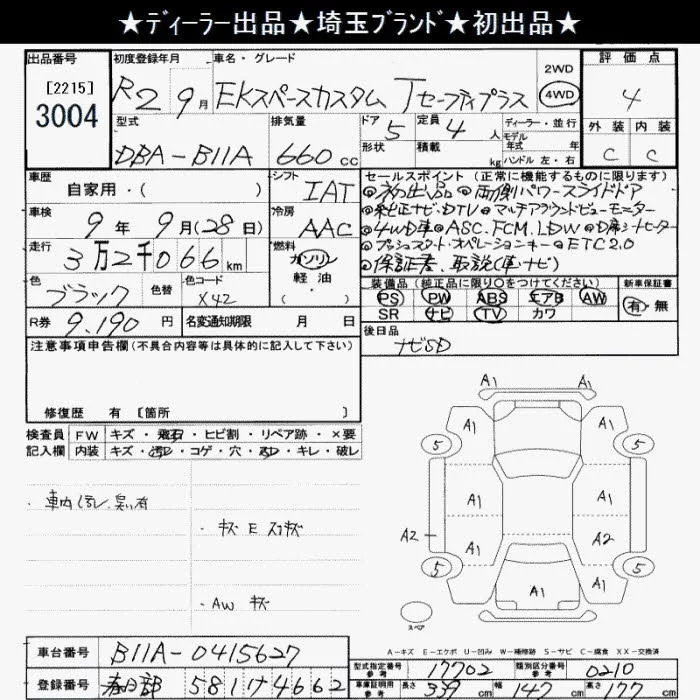 ★ディーラー出品★埼玉ブランド★初出品★
出品番号
[2215]
3004
初度登録年月
R2 9月
車名・グレード
EKスペースカスタム Tセーフティプラス
2WD
4WD
評価点
4
外装 内装
C C
型式
DBA-B11A
排気量
660cc
ドア 5
形状
定員 4人
積載 kg
ディーラー・並行
モデル
年式 年
ハンドル 左・右
車歴
自家用・( )
シフト
IAT
車検
9年 9月(28日)
冷房
AAC
走行
3万2千066km
燃料
ガソリン
軽油
( )
色
ブラック
色替
色コード
X42
R券 9,190円
名変通知期限 月 日
セールスポイント(正常に機能するものに限ります)
◎初出品◎両側パワースライドドア
◎純正ナビ.DTV◎マルチアラウンドビューモニター
◎4WD車◎ASC.FCM.LDW◎D席シートヒーター
◎プッシュスタート・オペレーションキー◎ETC2.0
◎保証書、取説(車・ナビ)
装備品(純正品に限り○をつけてください)
PS PW ABS エアB AW
SR ナビ TV カワ
新車保証書
有・無
後日品
ナビSD
注意事項申告欄(不具合内容等は具体的に記入して下さい)
修復歴 有 [箇所 ]
検査員
記入欄
FW キズ・飛石・ヒビ割・リペア跡・×要
内装 キズ・汚レ・コゲ・穴・・キレ・破レ
・キズ E
・AW キズ
A1 A1
A1 A1
5 5
A1 A1
A2 A1 A2
5 5
A1 A1
スペア
A-キズ E-エクボ U-凹み W-補修跡 S-サビ C-腐食 XX-交換済
車台番号 B11A-0415627
登録番号 春日部 581 4662
型式指定番号 参考 17702
類別区分番号 参考 0210
車庫証明用 参考 長さ 339cm 幅 147cm 高さ 177cm